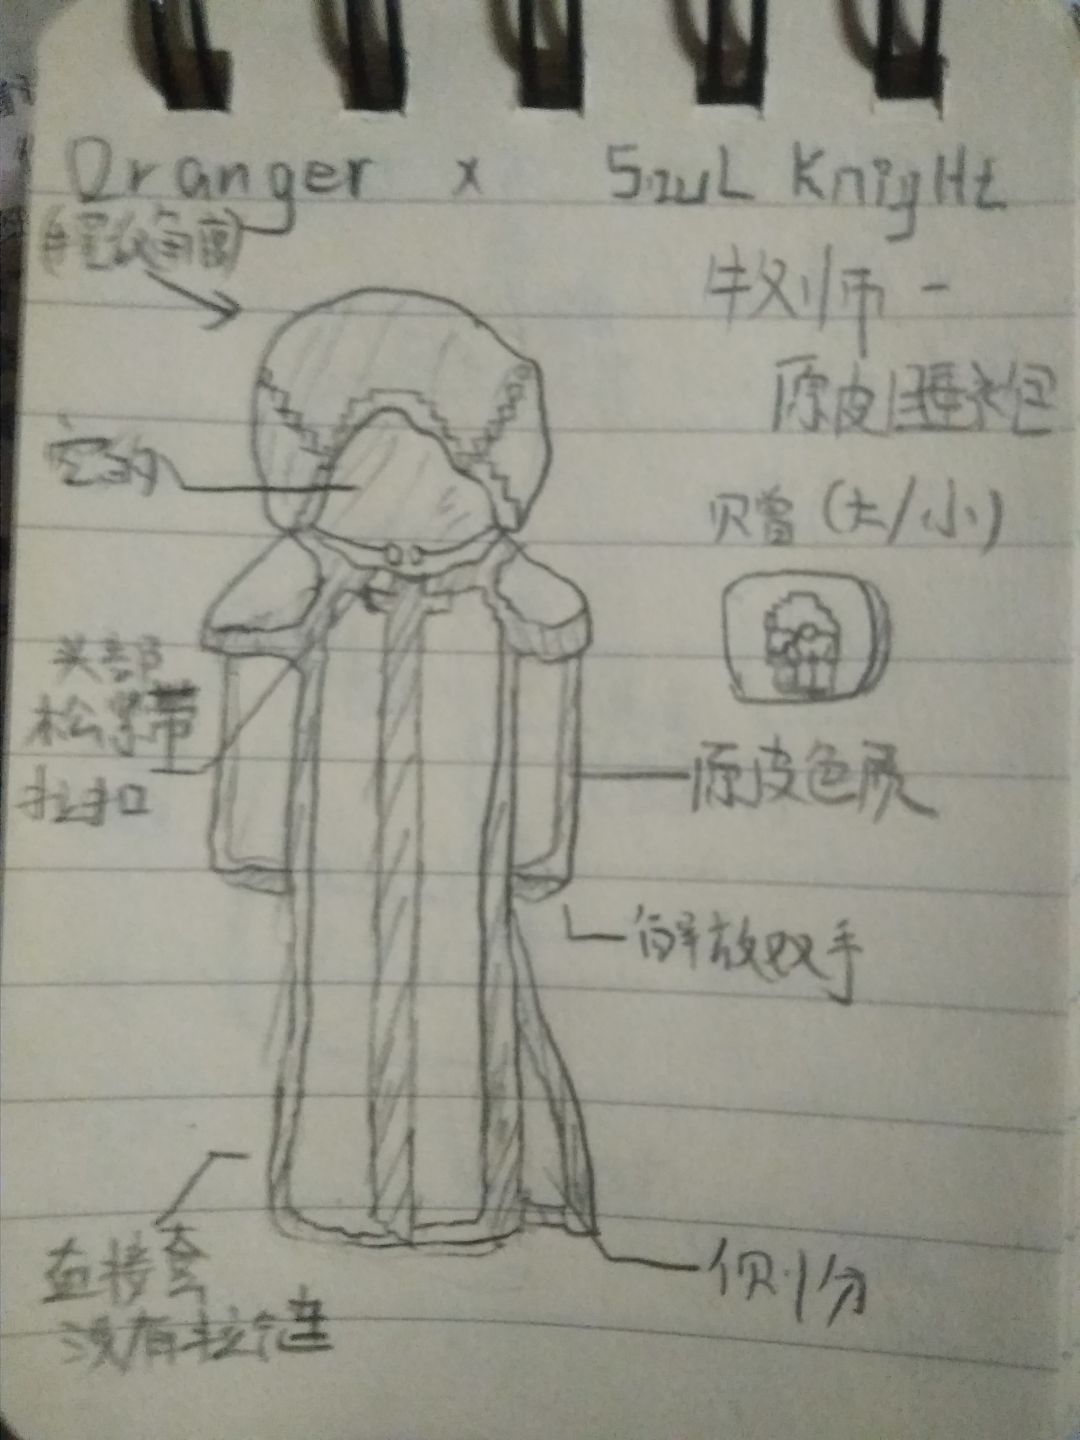 Oranger x Soul KnigHt
牧师 -
原皮睡衣包
空的
贝曾 (大/小)
头部
松紧带
拉扣
原皮色质
解放双手
直接套
没有拉链
侧分